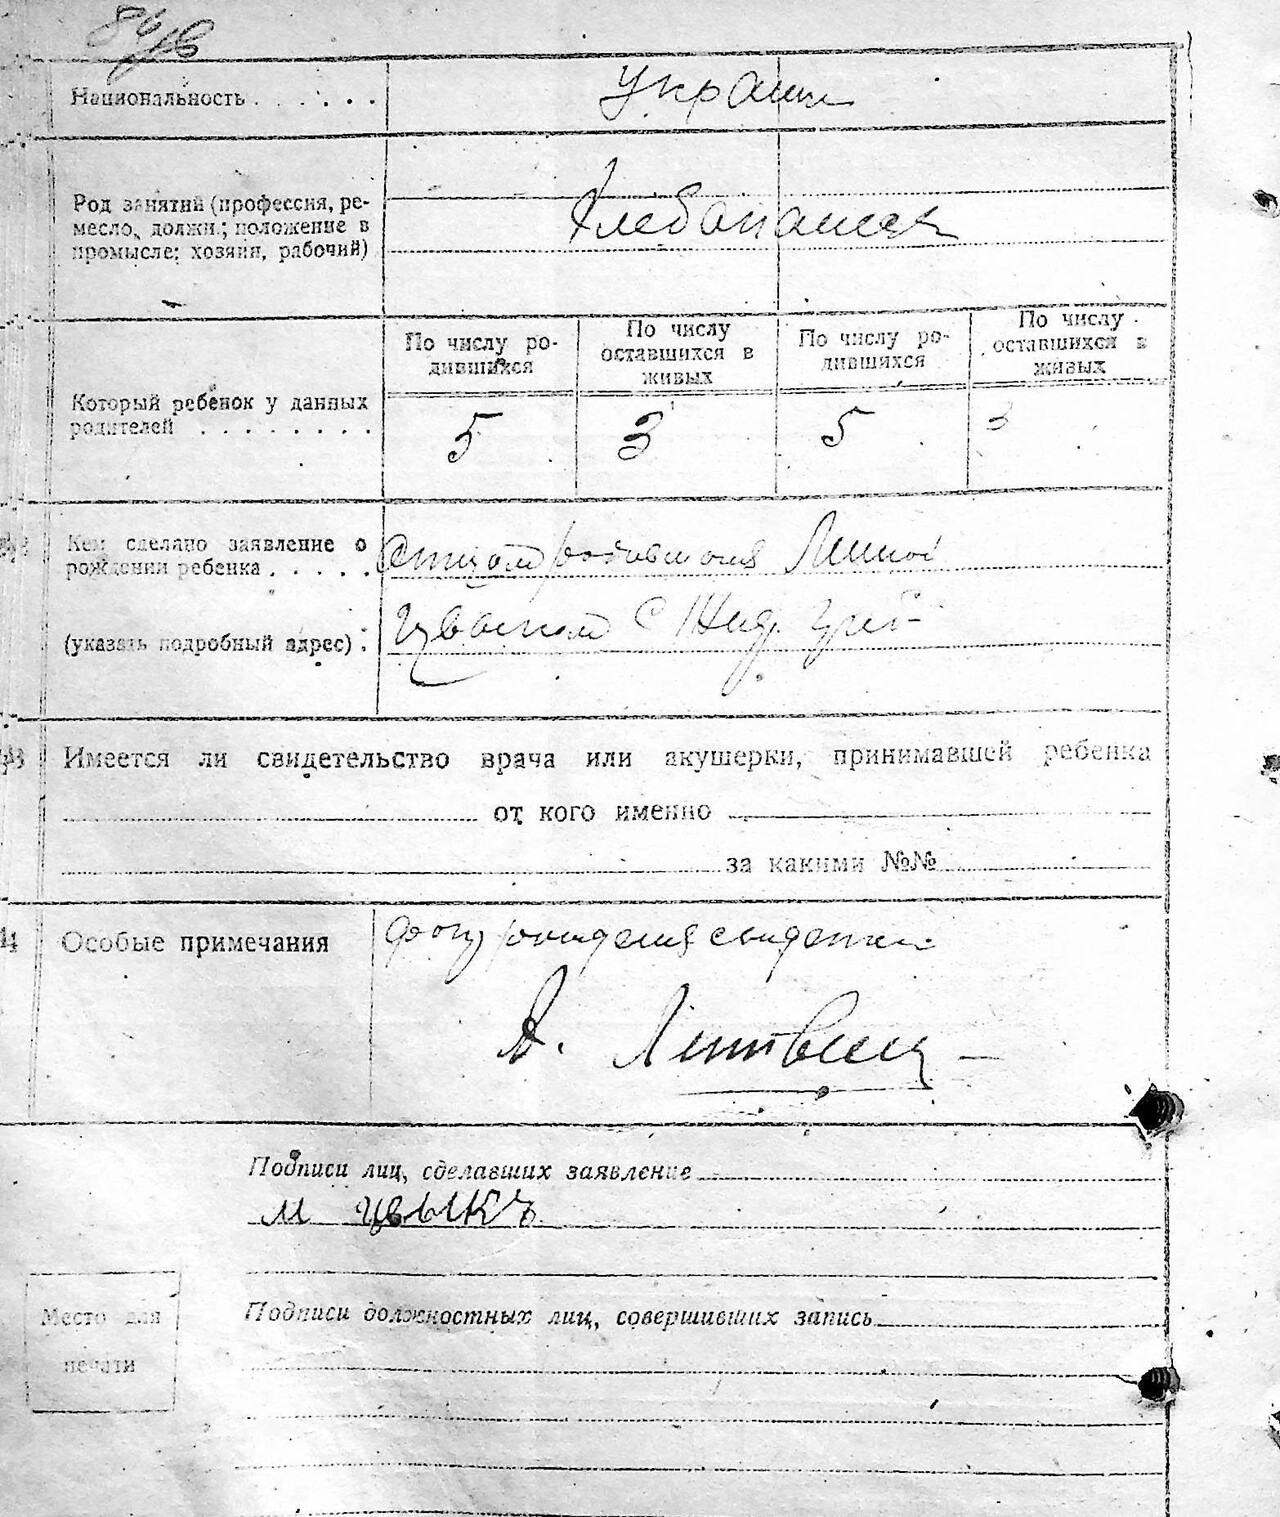 Национальность
Украин
Род занятий (профессия, ре-
месло, должн.; положение в
промысле; хозяин, рабочий)
Хлебопашец
По числу ро-
дившихся
По числу
оставшихся в
живых
По числу ро-
дившихся
По числу
оставшихся в
живых
Который ребенок у данных
родителей
5 3 5 3
Кем сделано заявление о
рождении ребенка
Отцом
(указать подробный адрес)
Имеется ли свидетельство врача или акушерки, принимавшей ребенка
от кого именно
за какими №№
14 Особые примечания
рождения
А. Литвин
Подписи лиц, сделавших заявление
М Цвыкъ
Место для
печати
Подписи должностных лиц, совершивших запись